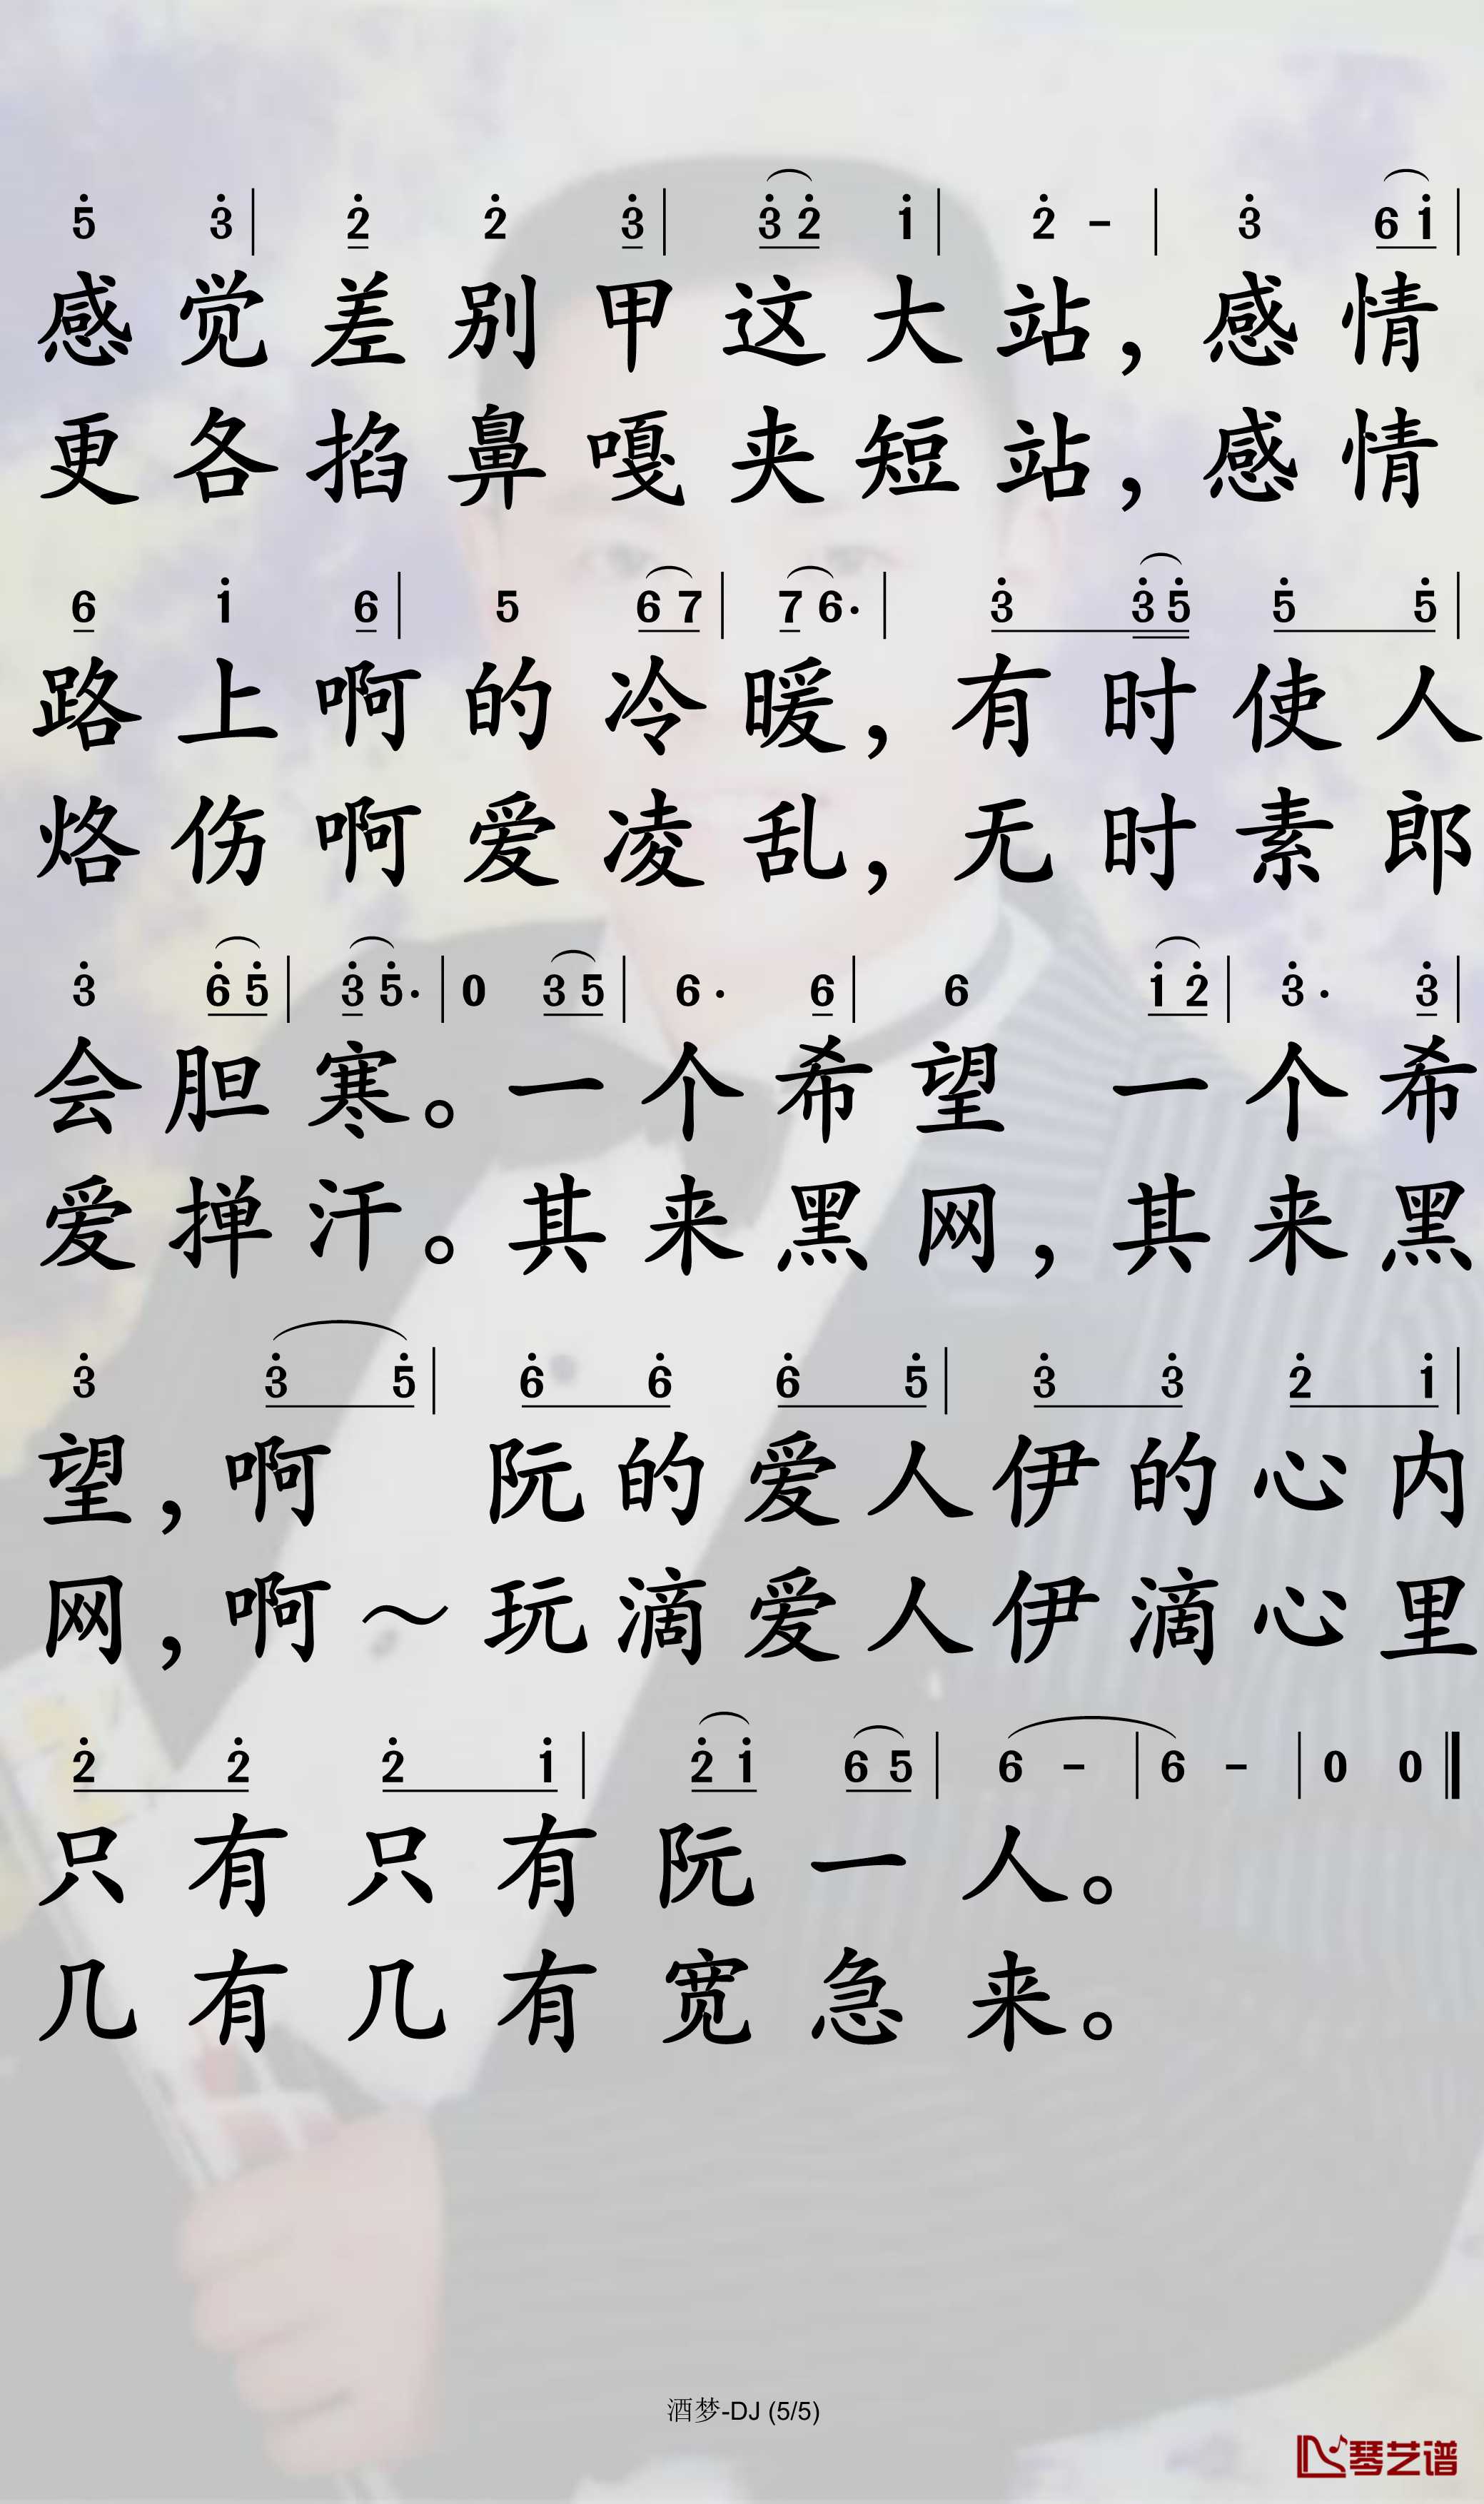 5 3 | 2 2 3 | 3 2 1 | 2 - | 3 6 1 |
感觉差别甲这大站，感情
更各掐鼻嘎夹短站，感情
6 1 6 | 5 6 7 | 7 6· | 3 3 5 5 5 |
路上啊的冷暖，有时使人
烙伤啊爱凌乱，无时素郎
3 6 5 | 3 5· | 0 3 5 | 6· 6 | 6 1 2 | 3· 3 |
会胆寒。一个希望 一个希
爱掸汗。其来黑网，其来黑
3 3 5 | 6 6 6 5 | 3 3 2 1 |
望，啊 阮的爱人伊的心内
网，啊～玩滴爱人伊滴心里
2 2 2 1 | 2 1 6 5 | 6 - | 6 - | 0 0 ‖
只有只有阮一人。
几有几有宽急来。
酒梦-DJ (5/5)
琴艺谱